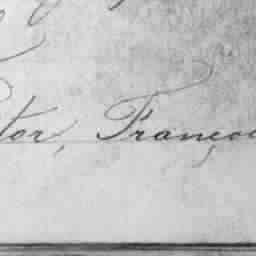 tor, Françoi